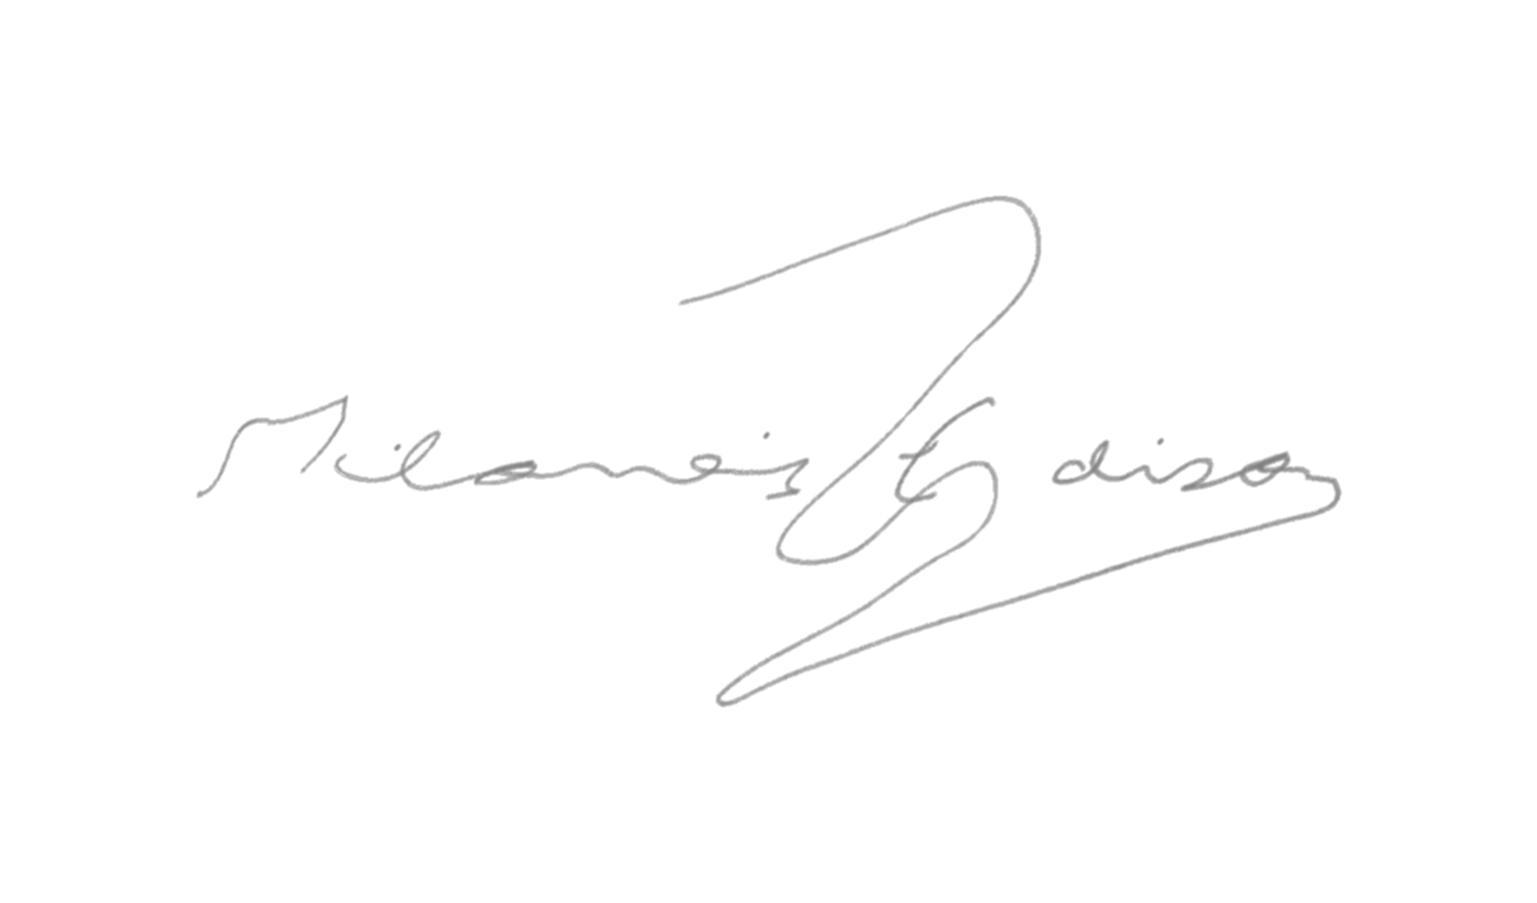 Milaneis Edison